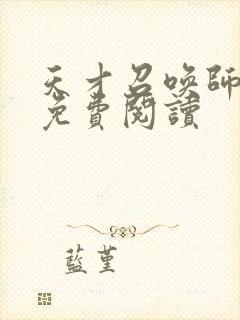 天才召喚師
免費閱讀
藍堇